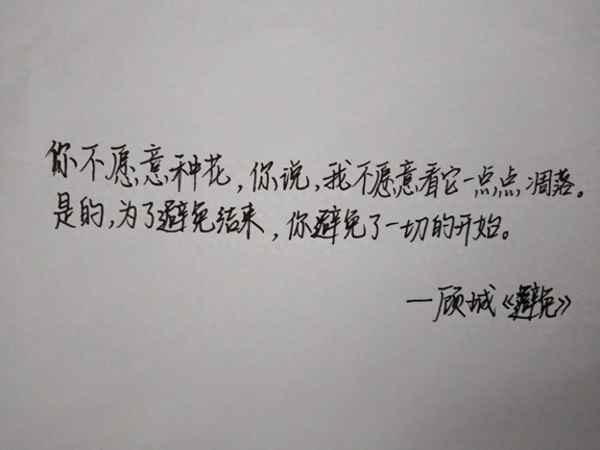 你不愿意种花，你说，我不愿意看它一点点凋落。
是的，为了避免结束，你避免了一切的开始。
—顾城《避免》